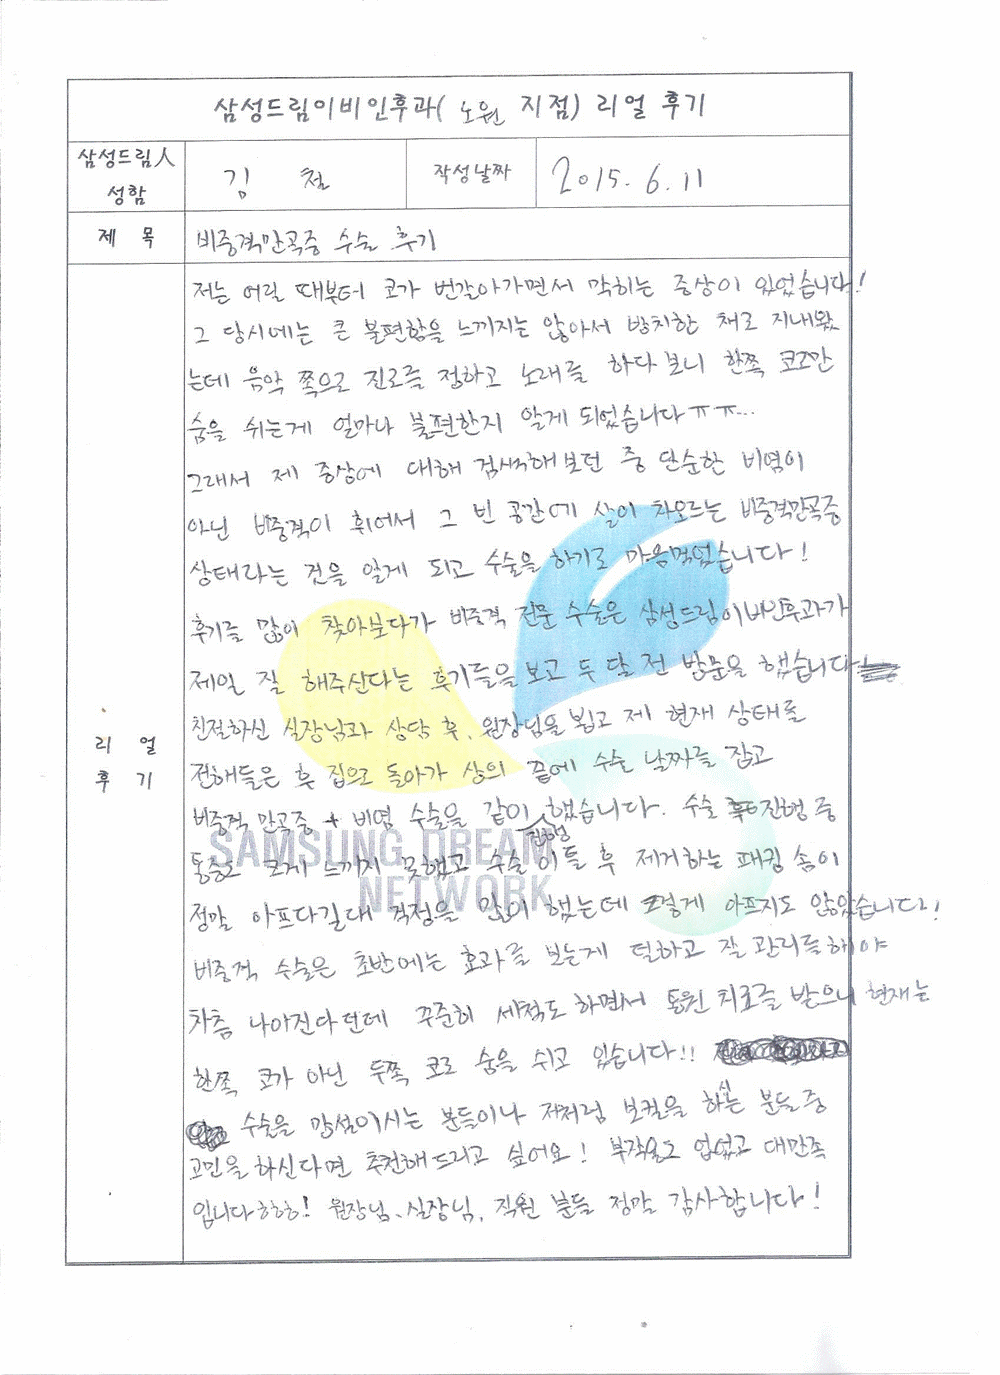 삼성드림이비인후과( 노원 지점) 리얼 후기
삼성드림人 성함
김 철
작성날짜
2015. 6. 11
제 목
비중격만곡증 수술 후기
리 얼
후 기
저는 어릴 때부터 코가 번갈아가면서 막히는 증상이 있었습니다!
그 당시에는 큰 불편함을 느끼지는 않아서 방치한 채로 지내왔
는데 음악 쪽으로 진로를 정하고 노래를 하다보니 한쪽 코로만
숨을 쉬는게 얼마나 불편한지 알게 되었습니다ㅠㅠ...
그래서 제 증상에 대해 검색해보던 중 단순한 비염이
아닌 비중격이 휘어서 그 빈 공간에 살이 차오르는 비중격만곡증
상태라는 것을 알게 되고 수술을 하기로 마음먹었습니다!
후기를 많이 찾아보다가 비중격 전문 수술은 삼성드림이비인후과가
제일 잘 해주신다는 후기들을 보고 두 달 전 방문을 했습니다
친절하신 실장님과 상담 후, 원장님을 뵙고 제 현재 상태를
전해들은 후 집으로 돌아가 상의 끝에 수술 날짜를 잡고
비중격 만곡증 + 비염 수술을 같이 진행 했습니다. 수술 진행 중
통증도 크게 느끼지 못했고 수술 이틀 후 제거하는 패킹 솜이
정말 아프다길래 걱정을 많이 했는데 그렇게 아프지도 않았습니다!
비중격 수술은 초반에는 효과를 보는게 덜하고 잘 관리를 해야
차츰 나아진다던데 꾸준히 세척도 하면서 통원 치료를 받으니 현재는
한쪽 코가 아닌 두쪽 코로 숨을 쉬고 있습니다!!
수술을 망설이시는 분들이나 저처럼 보컬을 하시는 분들 중
고민을 하신다면 추천해드리고 싶어요! 부작용도 없었고 대만족
입니다ㅎㅎㅎ! 원장님, 실장님, 직원 분들 정말 감사합니다!
SAMSUNG DREAM
NETWORK